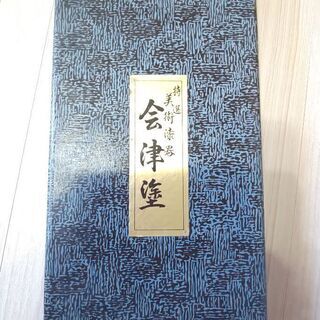 特選
美術漆器
会津塗